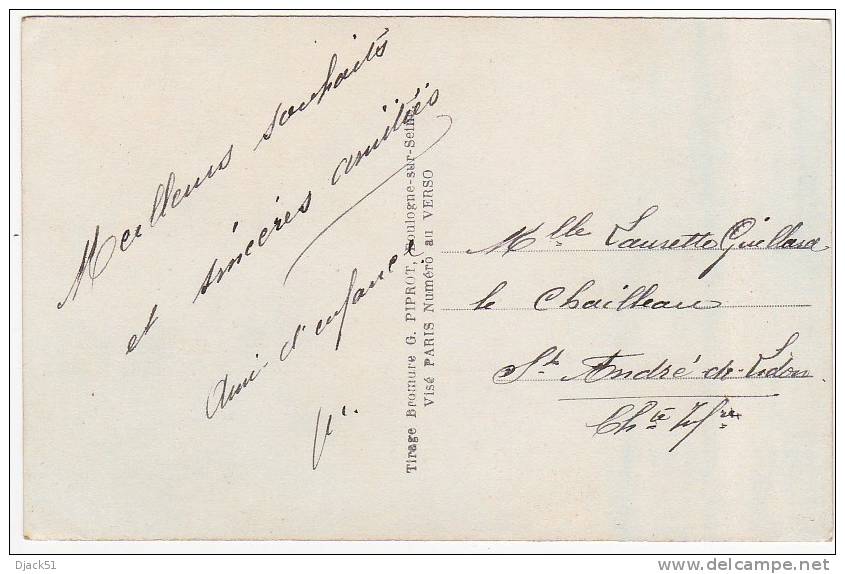 Meilleurs souhaits
et sincères amitiés
Ami d'enfance
Tirage Bromure G. PIPROT, Boulogne-sur-Seine
Visé PARIS Numéro au VERSO
Mlle Laurette Guillard
le Chailleau
St André-de-Lidon
Chte Infre
Djack51
www.delcampe.net